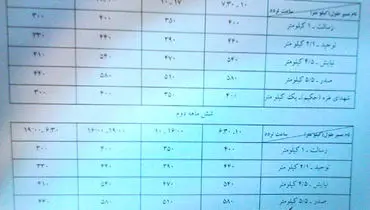 نام مسیر طول (کیلومتر) ساعت تردد ۷:۳۰ - ۱۰ ۱۰ - ۱۷
رسالت - ۱ کیلومتر ۴۰۰ ۳۵۰ ۴۰۰ ۳۰۰
توحید - ۲/۱ کیلومتر ۴۴۰ ۳۹۰ ۴۴۰ ۳۳۰
نیایش - ۴/۵ کیلومتر ۵۴۰ ۴۷۰ ۵۴۰ ۴۱۰
صدر - ۵/۵ کیلومتر ۵۸۰ ۵۱۰ ۵۸۰ ۴۴۰
شهدای غزه (حکیم) - یک کیلومتر ۴۰۰ ۳۵۰ ۴۰۰ ۳۰۰
شش ماهه دوم
نام مسیر طول (کیلومتر) ساعت تردد ۶:۳۰ - ۱۰ ۱۰ - ۱۶:۰۰ ۱۶:۰۰ - ۱۹:۰۰ ۱۹:۰۰ - ۶:۳۰
رسالت - ۱ کیلومتر ۴۰۰ ۳۵۰ ۴۰۰ ۳۰۰
توحید - ۲/۱ کیلومتر ۴۴۰ ۳۹۰ ۴۴۰ ۳۳۰
نیایش - ۴/۵ کیلومتر ۵۴۰ ۴۷۰ ۵۴۰ ۴۱۰
صدر - ۵/۵ کیلومتر ۵۸۰ ۵۱۰ ۵۸۰ ۴۴۰